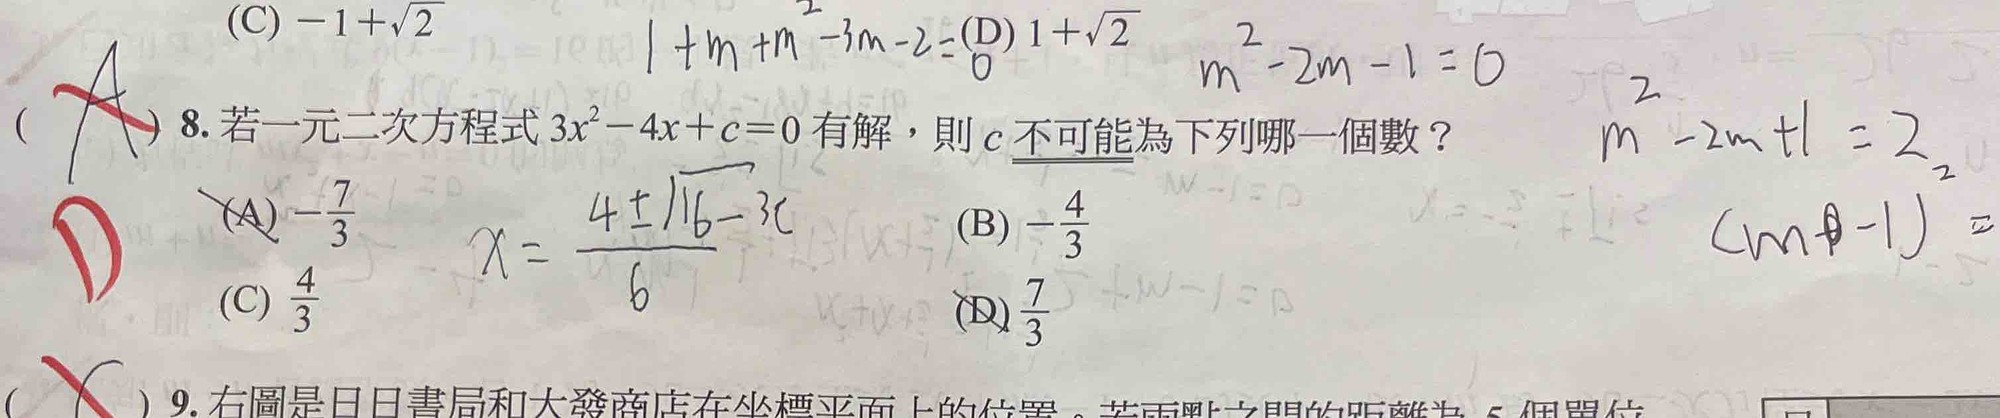 (C) −1+√2 1+m+m²−3m−2=0 (D) 1+√2 m²−2m−1=0
(A) 8. 若一元二次方程式 3x²−4x+c=0 有解，則 c 不可能為下列哪一個數？ m²−2m+1=2
D (A) −7/3 x=(4±√16−3c)/6 (B) −4/3 (m−1)²=
(C) 4/3 (D) 7/3
( ) 9. 右圖是日日書局和大發商店在坐標平面上的位置。若兩點之間的距離為 5 個單位